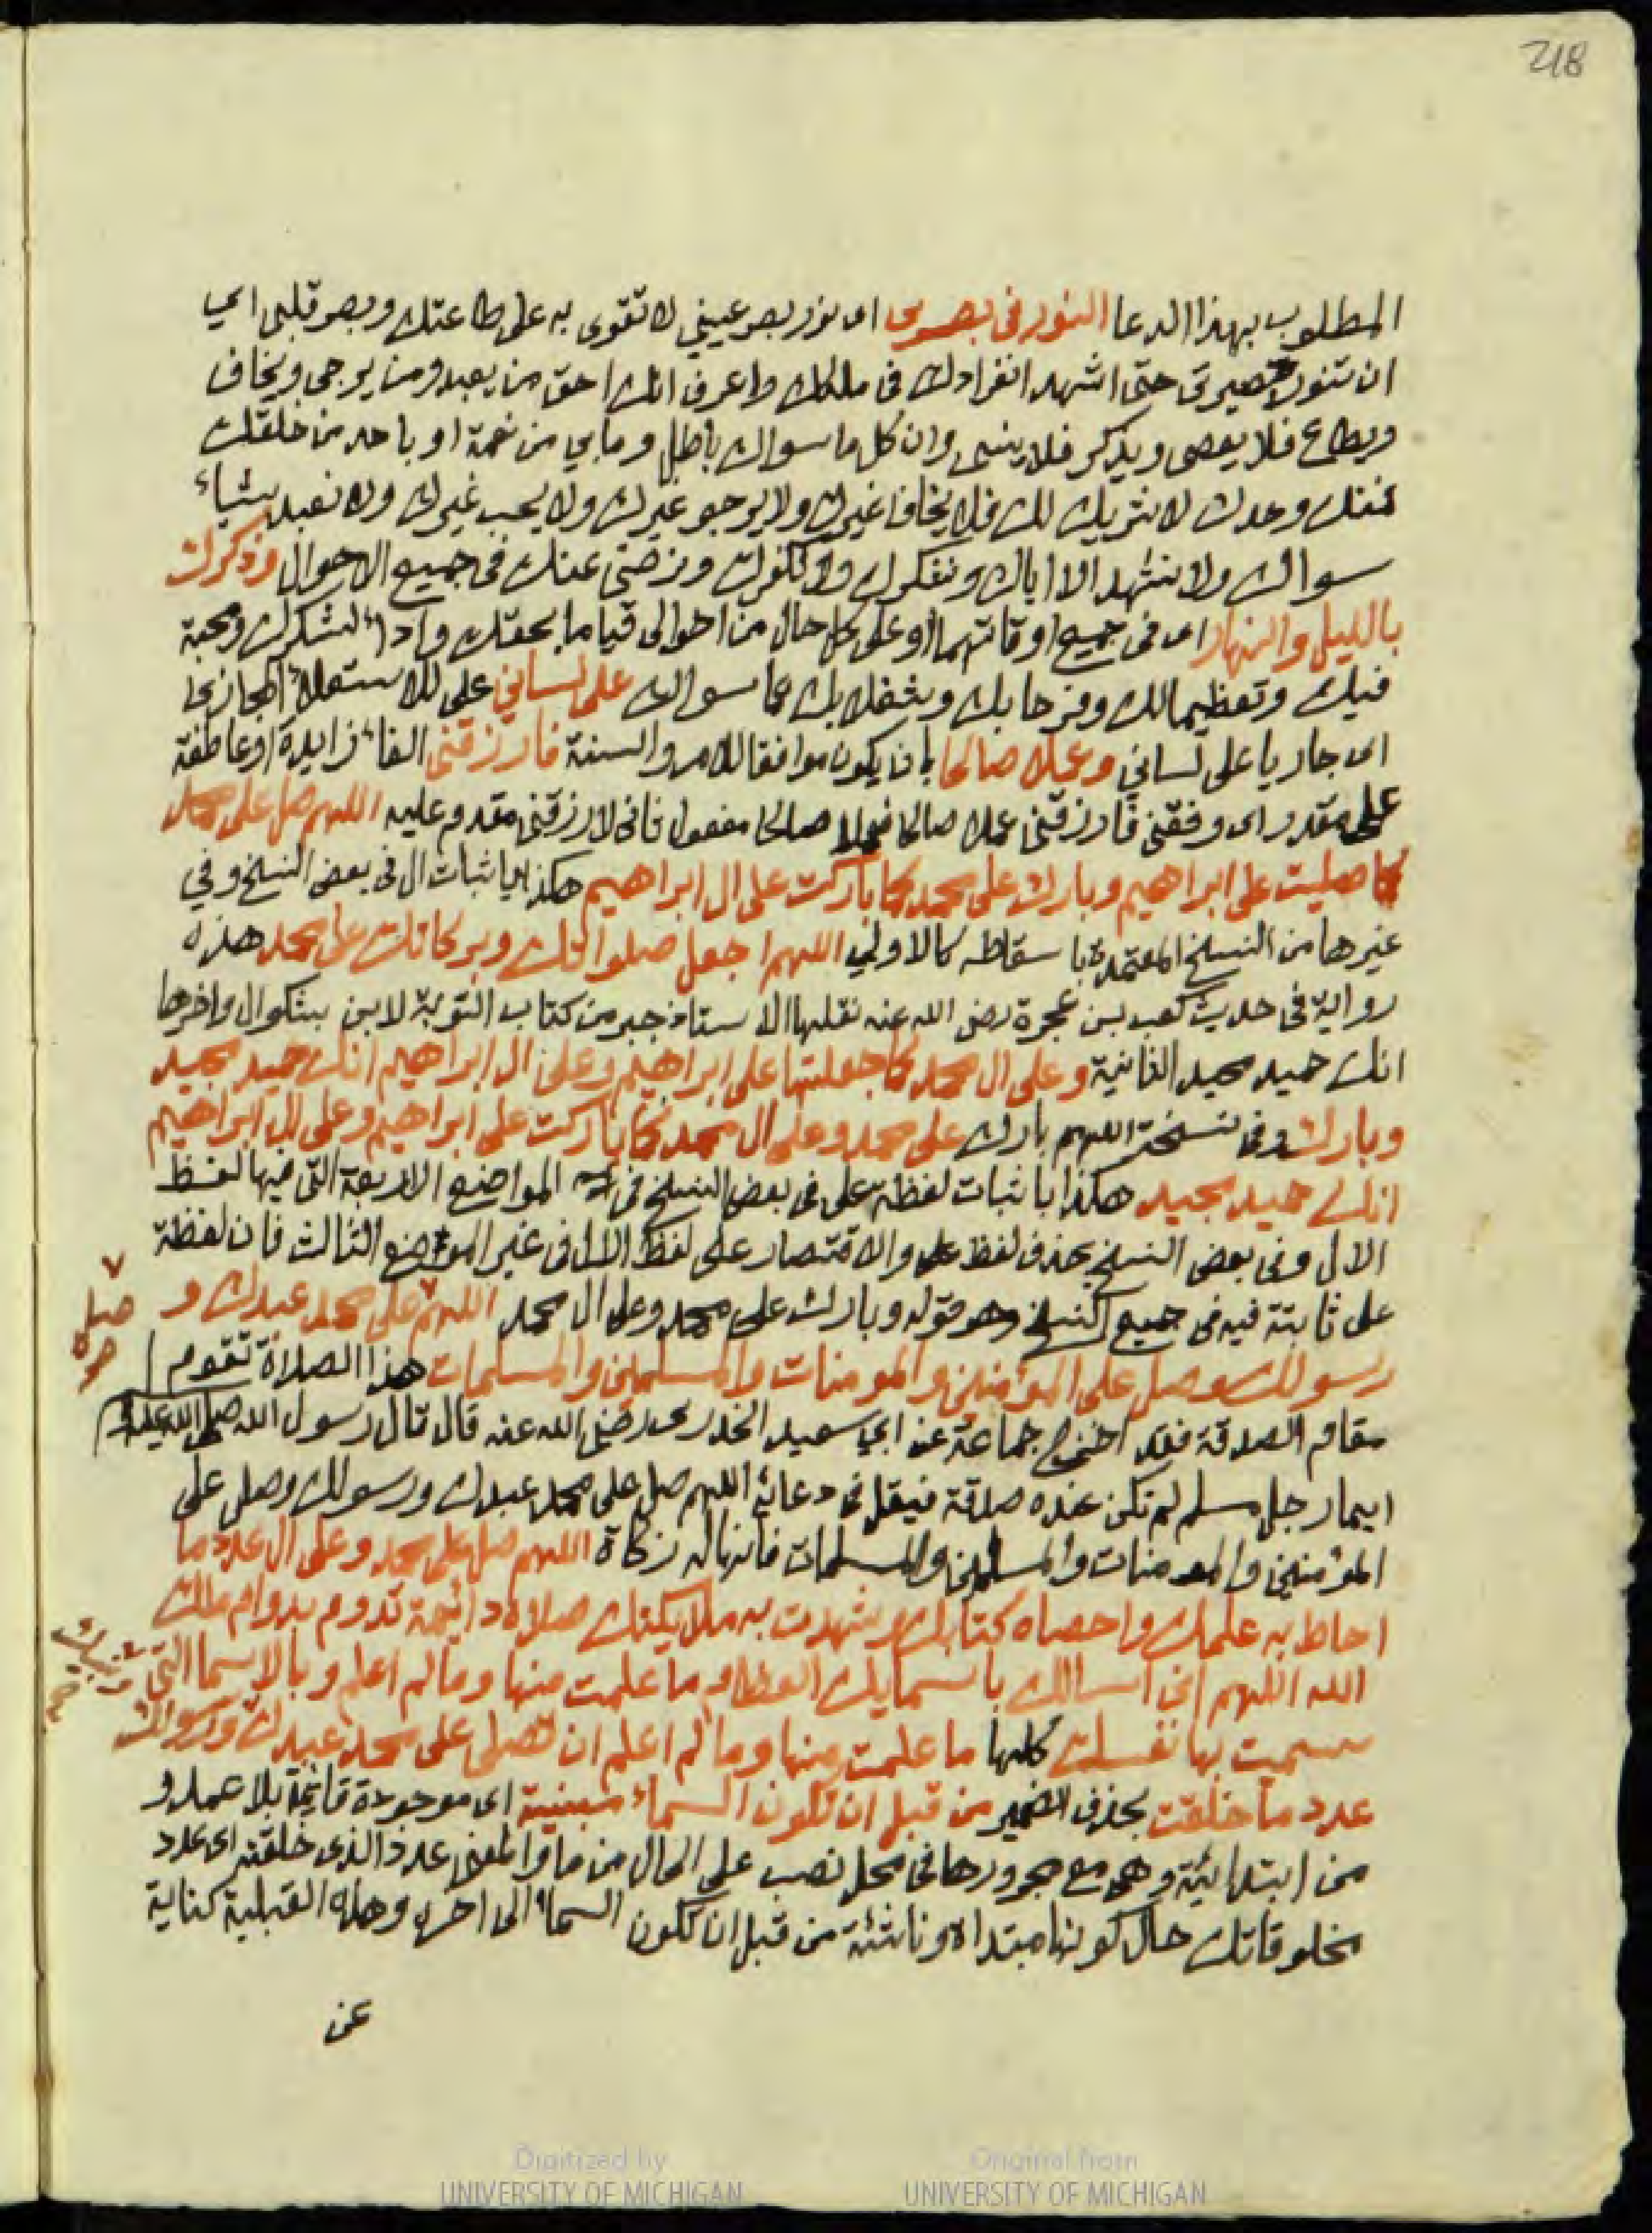 218
المطلوب بهذا الدعا النور في بصري اى نور بصر عيني لا تقوى به على طاعتك وبصر قلبي اي
ان تنور بصيرتي حتى اشهد انفرادك في ملكك واعرف انك احق من يعبد ومن يرجى ويخاف
ويطاع فلا يعصى ويذكر فلا ينسى وان كل ما سواك باطل وما بي من نعمة او باحد من خلقك
فمنك وحدك لا شريك لك فلا يخاف غيرك ولا يرجو غيرك ولا يحب غيرك ولا نعبد شياء
سواك ولا نشهد الا اياك ونفكرك ولا نكفرك ونرضى عنك في جميع الاحوال وذكرك
بالليل والنهار اى فى جميع اوقاتهما او على كل حال من احوالى قياما بحقك واداء لشكرك ومحبة
فيك وتعظيما لك وفرحا بك وشغلا بك عما سواك على لساني على للاستعلاء المجازيا
اى جاريا على لساني وعملا صالحا بان يكون موافقا للامر والسنة فارزقنى الفاء زايدة او عاطفة
على مقدر اى وفقنى فارزقنى عملا صالحا فعملا صالحا مفعول ثانى لارزقنى مقدم عليه اللهم صل على محمد
كما صليت على ابراهيم وبارك على محمد كما باركت على ال ابراهيم هكذا باثبات ال فى بعض النسخ وفي
غيرها من النسخ المعتمدة باسقاطه كالاولي اللهم اجعل صلواتك وبركاتك على محمد هذه
رواية فى حديث كعب بن عجرة رضى الله عنه نقلها الاستاذ جبر من كتاب التوبة لابن بشكوال واخرها
انك حميد مجيد الثانية وعلى ال محمد كما جعلتها على ابراهيم وعلى ال ابراهيم انك حميد مجيد
وبارك وفى نسخة اللهم بارك على محمد وعلى ال محمد كما باركت على ابراهيم وعلى ال ابراهيم
انك حميد مجيد هكذا باثبات لفظة على فى بعض النسخ فى المواضع الاربعة التى فيها لفظ
الال وفى بعض النسخ بحذف لفظ على والاقتصار على لفظ الال فى غير الموضع الثالث فان لفظة
على ثابتة فيه فى جميع النسخ وهو قوله وبارك على محمد وعلى ال محمد اللهم على محمد عبدك و
صل
صح
رسولك وصل على المؤمنين والمومنات والمسلمين والمسلمات هذا الصلاة تقوم
مقام الصدقة فقد اخرج جماعة عن ابي سعيد الخدرى رضى الله عنه قال قال رسول الله صلى الله عليه
ايما رجل مسلم لم تكن عنده صدقة فيقل فى دعائه اللهم صل على محمد عبدك ورسولك وصلى على
المؤمنين والمومنات والمسلمين والمسلمات فانها له زكاة اللهم صل على محمد وعلى ال عدد ما
احاط به علمك واحصاه كتابك وشهدت به ملايكتك صلاة دائيمة تدوم بدوام ملك
الله اللهم انى اسالك باسمايك العظام ما علمت منها وما لم اعلم وبالاسما التى
سميت بها نفسك كلها ما علمت منها وما لم اعلم ان تصلى على محمد عبدك ورسولك
ونبيك
صح
عدد ما خلقت بحذف الضمير من قبل ان تكون السماء مبنية اى موجودة قايمة بلا عمد و
من ابتدائية وهى مع مجرورها فى محل نصب على الحال من ما والمعنى عدد الذى خلقته اى عدد
مخلوقاتك حال كونها مبتداة وناشئة من قبل ان تكون السماء الى اخره وهذه القبلية كناية
عن
Digitized by
UNIVERSITY OF MICHIGAN
Original from
UNIVERSITY OF MICHIGAN